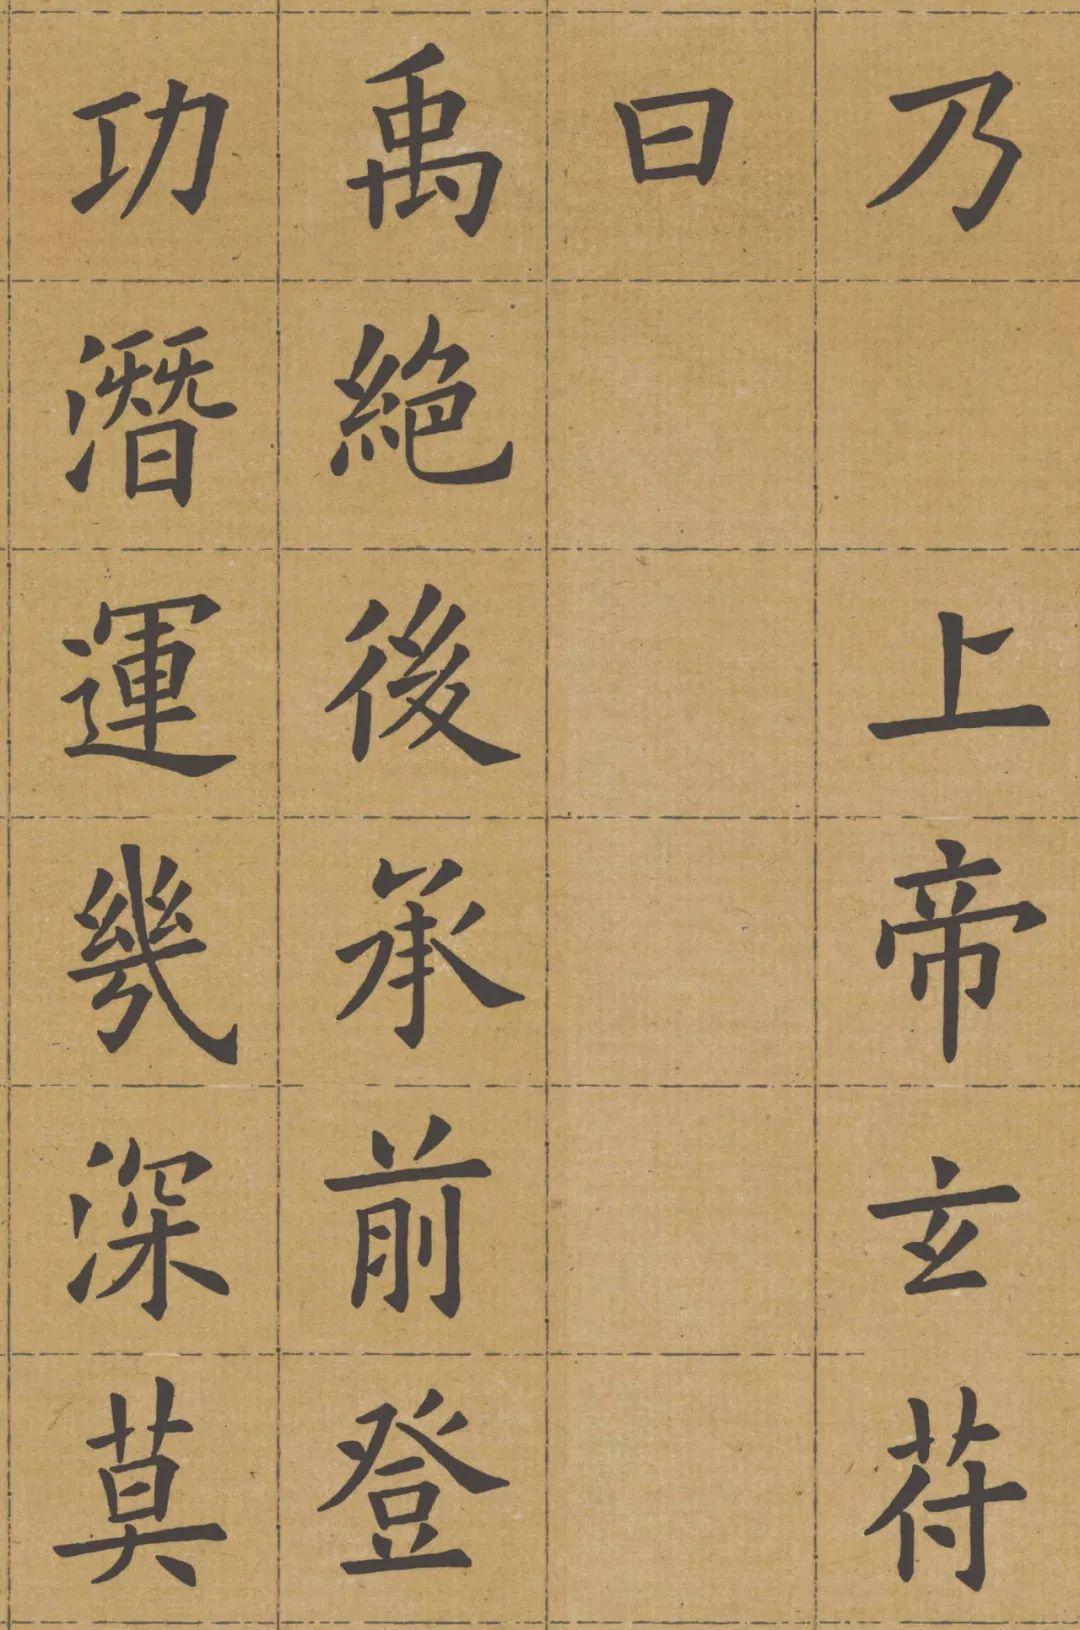 乃上帝玄苻
曰
禹絶後承前登
功潛運幾深莫